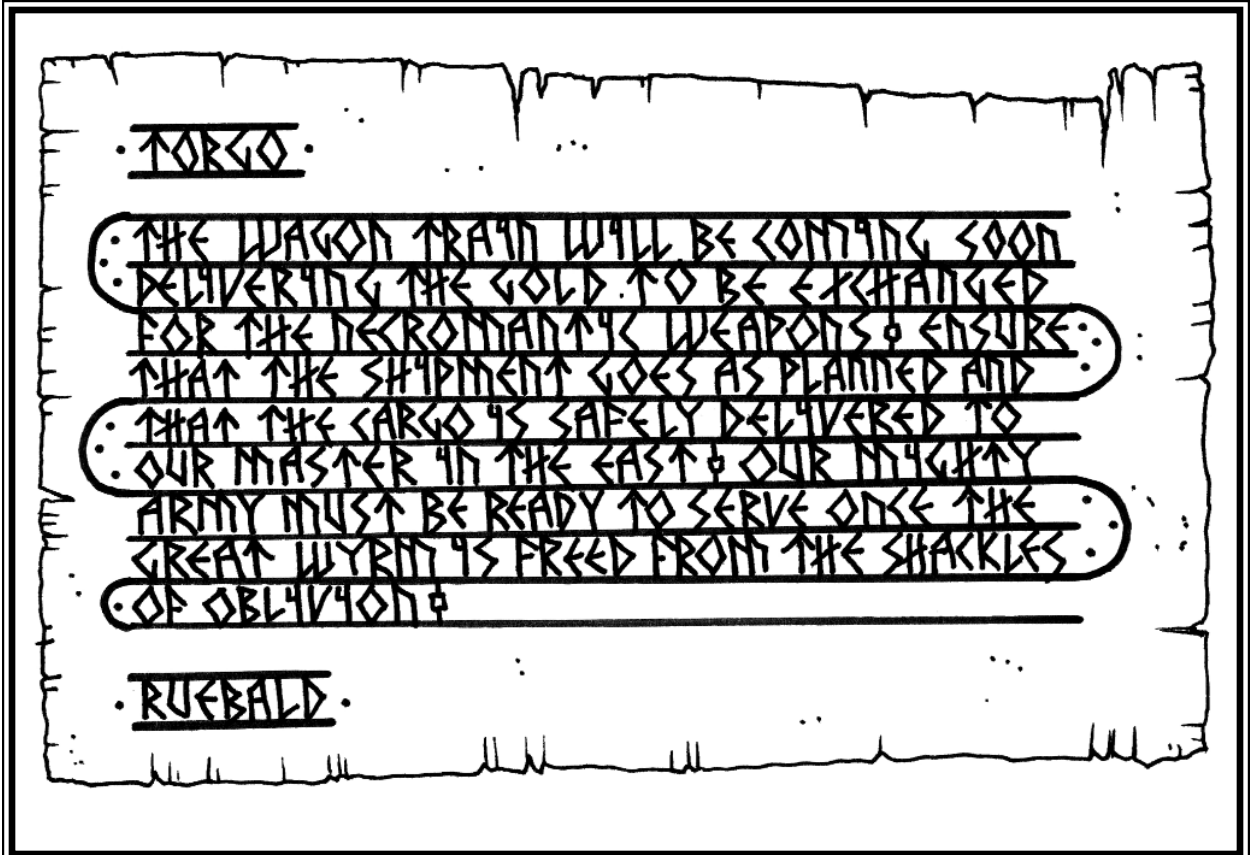 TORGO
THE WAGON TRAIN WILL BE COMING SOON
DELIVERING THE GOLD TO BE EXCHANGED
FOR THE NECROMANTIC WEAPONS. ENSURE
THAT THE SHIPMENT GOES AS PLANNED AND
THAT THE CARGO IS SAFELY DELIVERED TO
OUR MASTER IN THE EAST. OUR MIGHTY
ARMY MUST BE READY TO SERVE ONCE THE
GREAT WYRM IS FREED FROM THE SHACKLES
OF OBLIVION.
RUEBALD